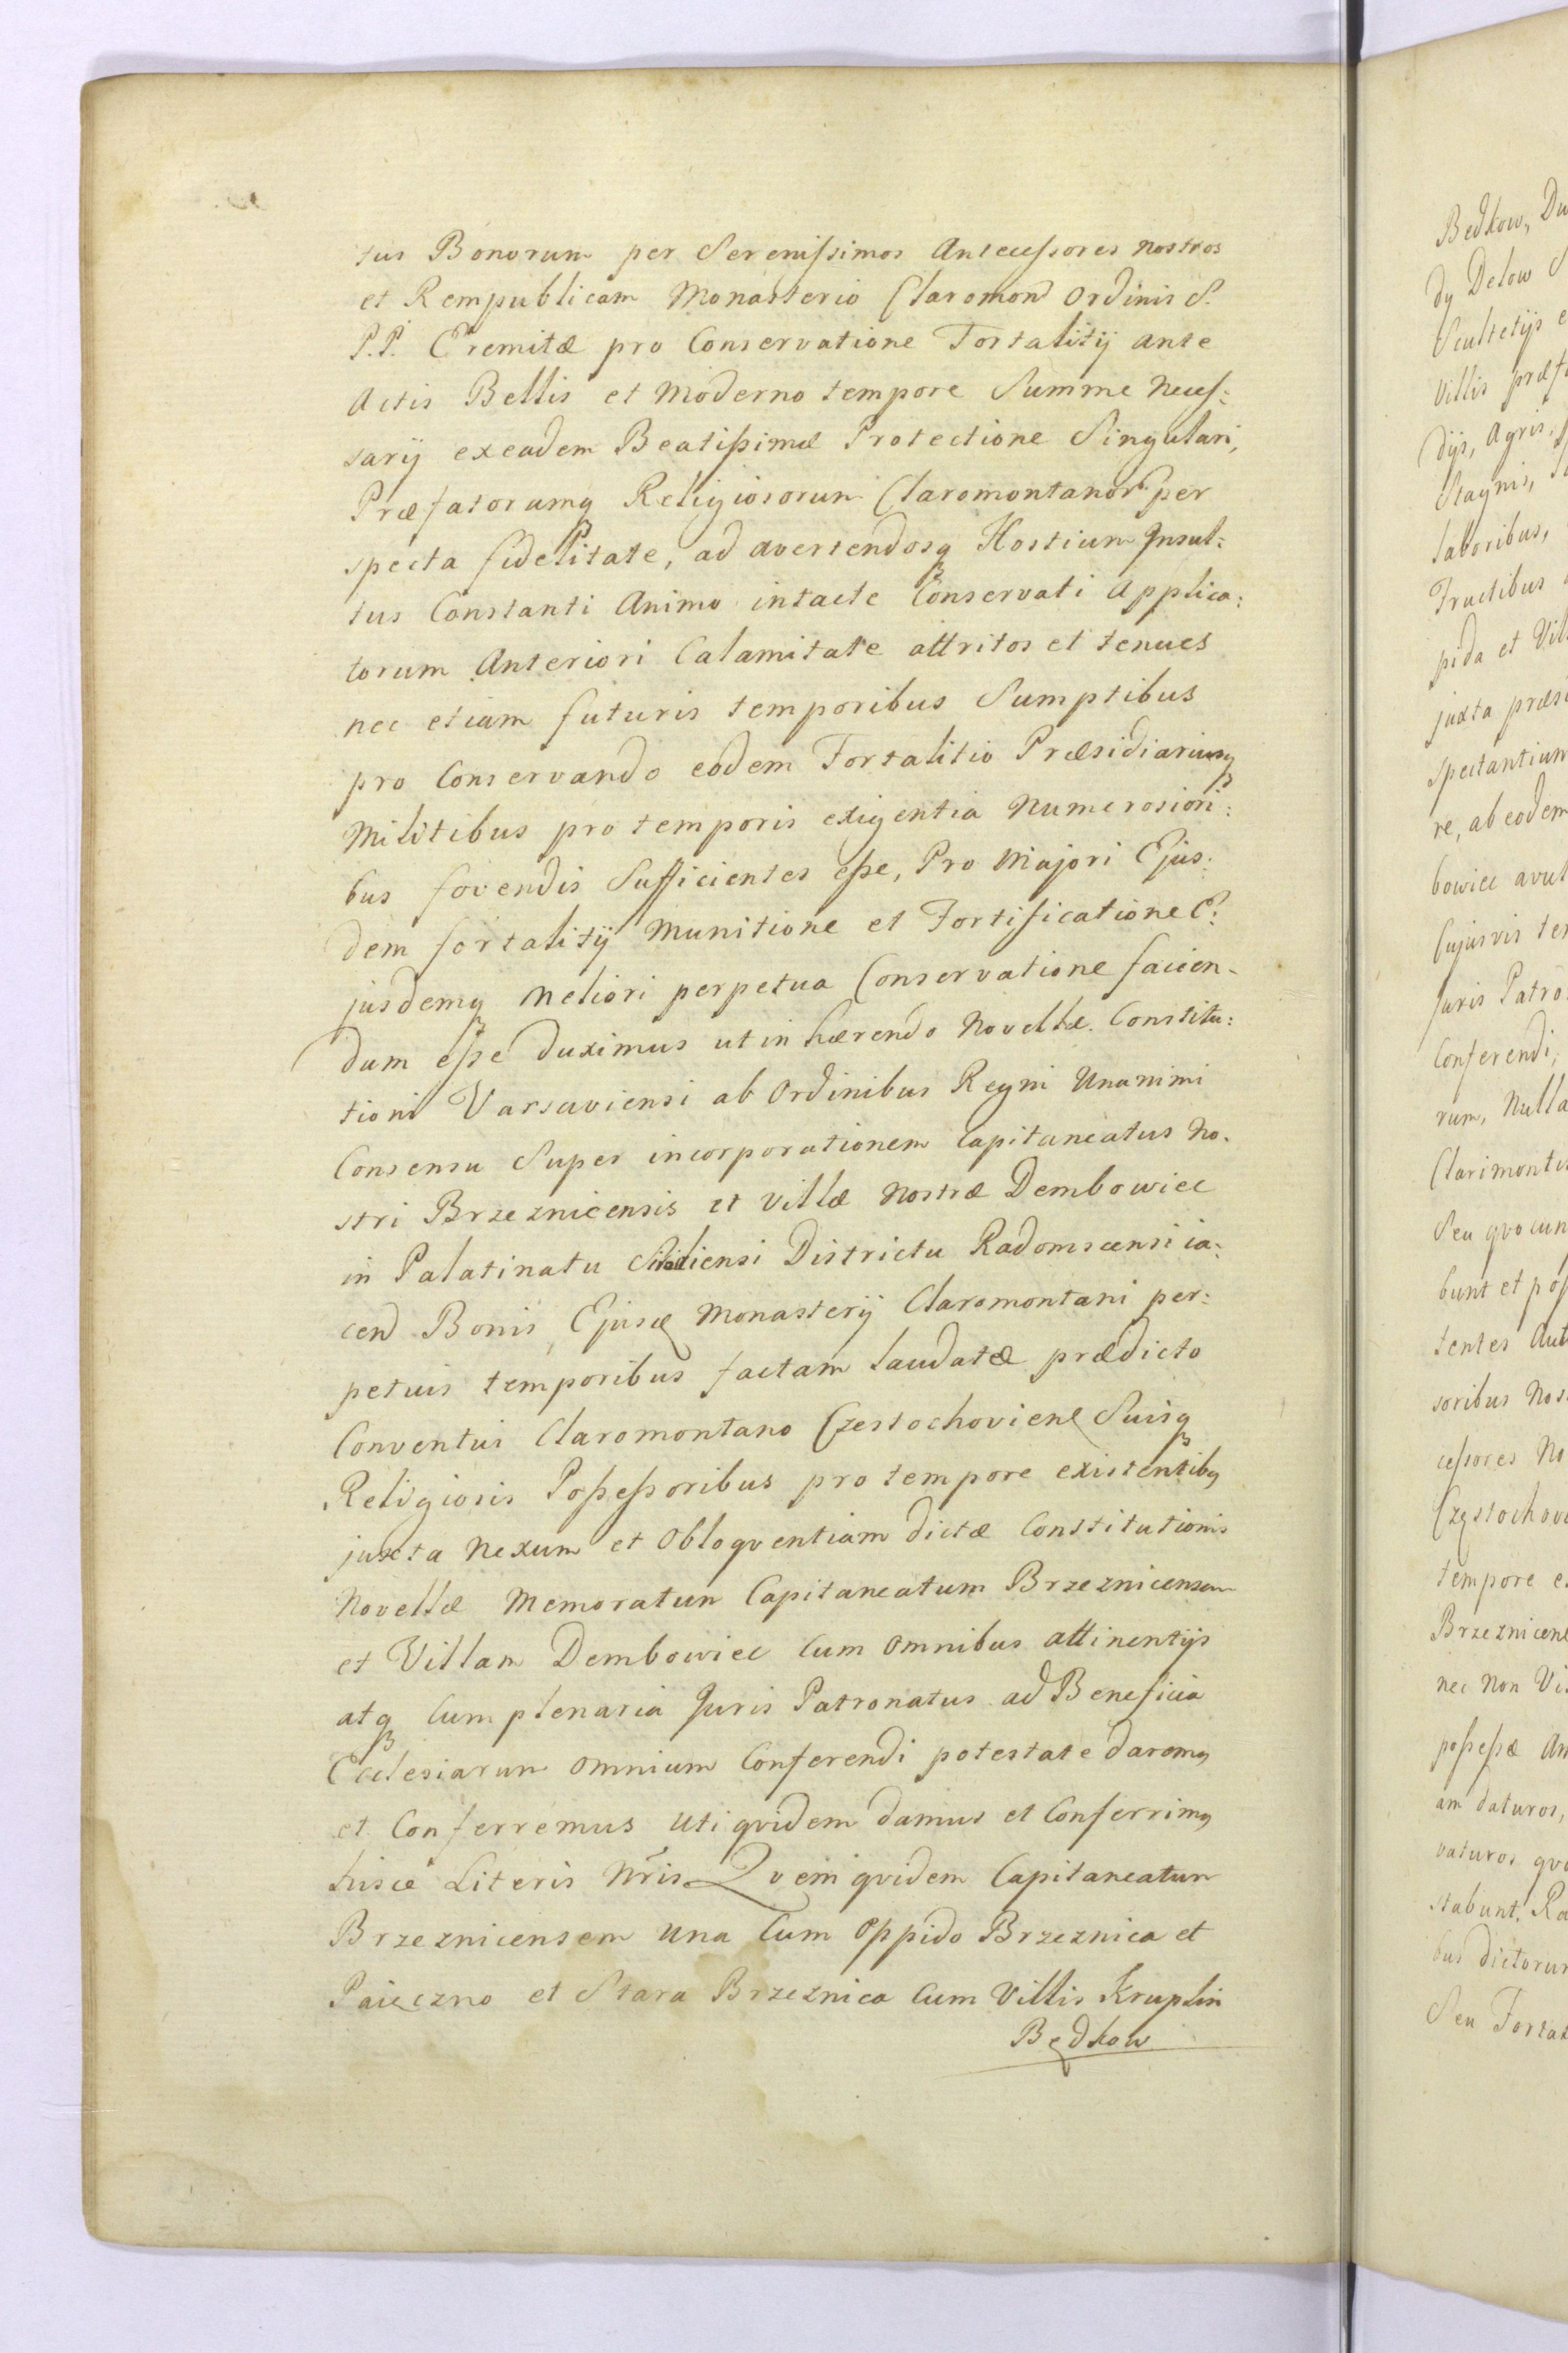 tus Bonorum per Serenissimos Antecessores nostros
et Rempublicam Monasterio Claromond Ordinis S.
P.P. Eremitæ pro Conservatione Fortalitij ante
Actis Bellis et Moderno tempore Summe Neces:
sarij exeadem Beatissimæ Protectione Singulari,
Præfatorumq Religiosorum Claromontanor per
specta fidelitate, ad avertendosq Hostium Insul:
tus Constanti Animo intacte Conservati Applica:
torum Anteriori Calamitate attritos et tenues
nec etiam futuris temporibus Sumptibus
pro Conservando eodem Fortalitio Præsidiariusq
Militibus pro temporis exigentia Numerosiori:
bus fovendis Sufficientes esse, Pro Majori Ejus:
dem fortalitij Munitione et Fortificatione E:
jusdemq Meliori perpetua Conservatione facien-
dum esse duximus ut in hærendo Novellæ Constitu:
tioni Varsaviensi ab Ordinibus Regni Unanimi
Consensu Super incorporationem Capitaneatus No-
stri Brzeznicensis et Villæ Nostræ Dembowiec
in Palatinatu Districtu Radomscensi ia:
cend Bonis Monasterij Claromontani per:
petuis temporibus factam laudatæ prædicto
Conventui Claromontano Czestochovien Suisq
Religiosis Possessoribus pro tempore existentibq
juxta Nexum et Obloquentiam dictæ Constitutionis
Novellæ Memoratum Capitaneatum Brzeznicensem
et Villam Dembowiec Cum Omnibus attinentijs
atq Cum plenaria Juris Patronatus ad Beneficia
Ecclesiarum Omnium Conferendi potestate daremq
et Conferremus uti quidem damus et Conferrimq
hisce Literis Nris Quem quidem Capitaneatum
Brzeznicensem una Cum Oppido Brzeznica et
Paięczno et Stara Brzeznica Cum Villis Kruplin
Będkow
Bedkow, Du
dy Delow S
Scultetijs e
Villis præf
dijs, Agris,
Stagnis,
laboribus,
Fructibus
pida et Vil
juxta præs
spectantium
re, ab eodem
bowiec avul
Cujusvis te
Juris Patro
Conferendi,
rum, Nulla
Clarimontis
Seu quocun
bunt et pos
tentes Aut
soribus Nos
cessores No
Częstochov
tempore e
Brzeznicen
nec Non Vi
possessæ An
am daturos,
vaturos qu
stabunt, Ra
bus dictorum
Seu Fortal